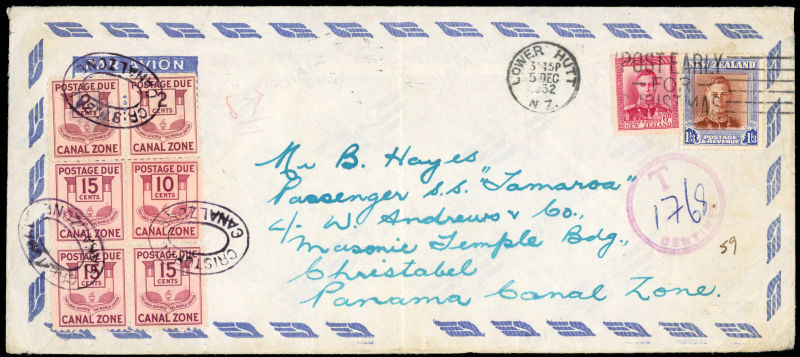 PAR AVION
POSTAGE DUE
2
CENTS
CANAL ZONE
POSTAGE DUE
2
CENTS
CANAL ZONE
POSTAGE DUE
15
CENTS
CANAL ZONE
POSTAGE DUE
10
CENTS
CANAL ZONE
POSTAGE DUE
15
CENTS
CANAL ZONE
POSTAGE DUE
15
CENTS
CANAL ZONE
CANAL ZONE
LOWER HUTT
3 45P
5 DEC
1952
N.Z.
POST EARLY
FOR
NEW ZEALAND
NEW ZEALAND
POSTAGE
& REVENUE
1/3 1/3
Mr B. Hayes
Passenger s.s. "Tamaroa"
c/- W. Andrews & Co.,
Masonic Temple Bdg.,
Christabel
Panama Canal Zone.
T
1768
59